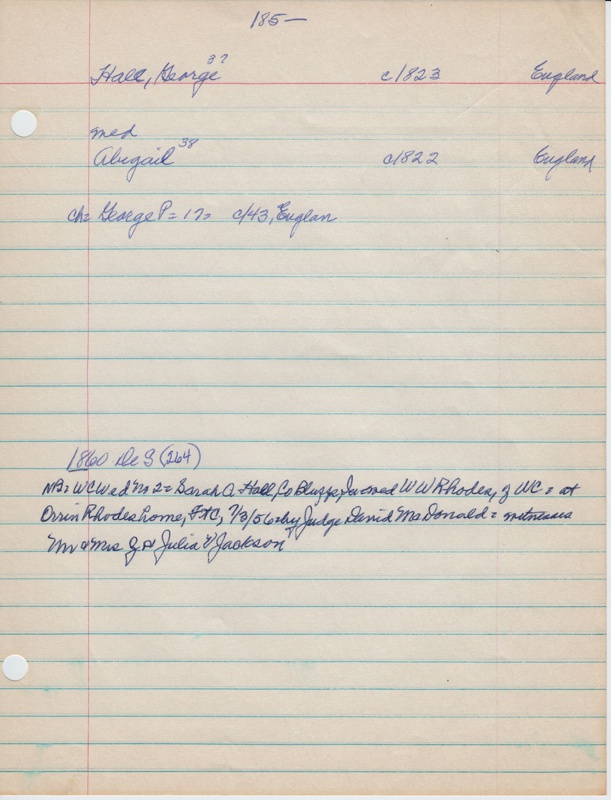 185—
Hall, George 37 c1823 England
med
Abigail 38 c1822 England
ch= George P = 17= c/43, Englan
1860 De S (264)
NB= WC Wed M 2= Sarah A. Hall, Co Bluffs, Ia med W W Rhodes, of WC = at
Orrin Rhodes home, FtC, 7/3/56= by Judge David McDonald = witnesses
Mr & Mrs J H Julia V Jackson